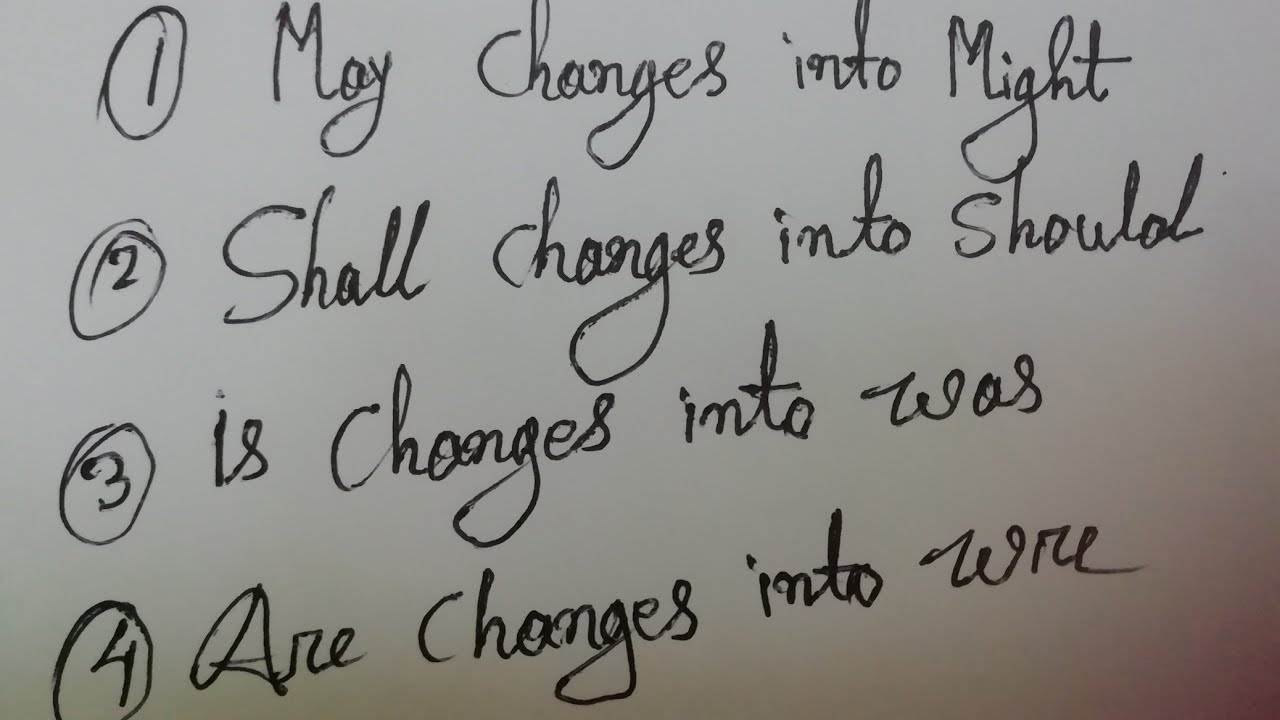 ① May Changes into Might
② Shall Changes into Should
③ is Changes into was
④ Are Changes into wre